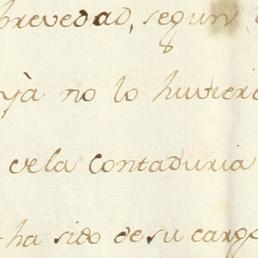 brevedad, segun
yà no lo huviere
dela Contaduria
ha sido desu cargo